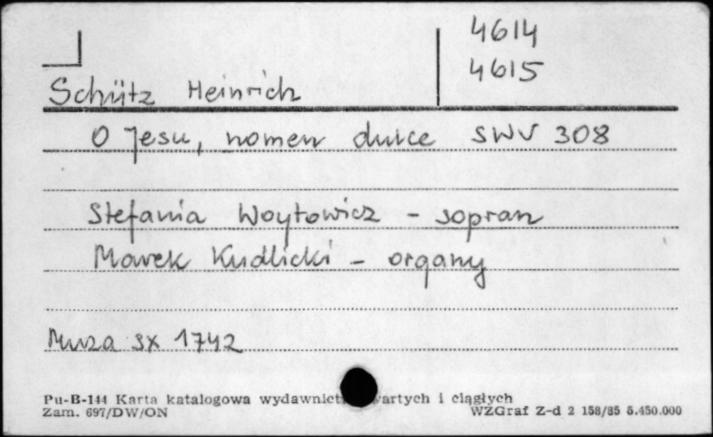 4614
4615
Schütz Heinrich
O Jesu, nomen dulce SWV 308
Stefania Woytowicz - sopran
Marek Kudlicki - organy
Muza SX 1742
Pu-B-144 Karta katalogowa wydawnict wartych i ciągłych
Zam. 697/DW/ON WZGraf Z-d 2 158/85 5.450.000